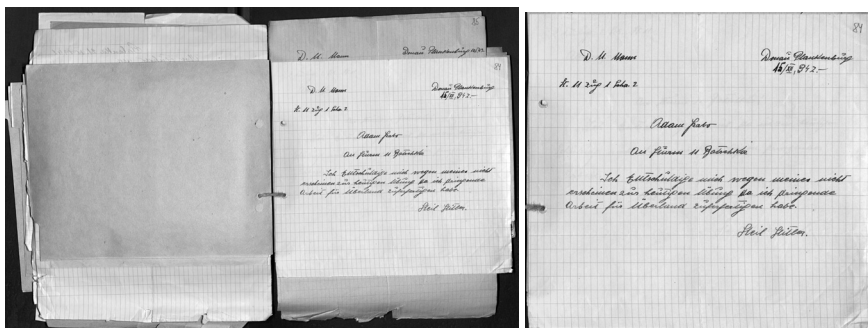 85
D. M. Mann Donau Blanckenburg
84
D. M. Mann Donau Blanckenburg
15/XI. 942.–
K. 11 Zug 1 Scha. 2
Adam
An Sturm 11
Ich Entschuldige mich wegen meines nicht
erscheinen zur heutigen Übung da ich dringende
Arbeit für Überland zufertigen habe.
Heil Hitler.
84
D. M. Mann Donau Blanckenburg
15/XI. 942.–
K. 11 Zug 1 Scha. 2
Adam
An Sturm 11
Ich Entschuldige mich wegen meines nicht
erscheinen zur heutigen Übung da ich dringende
Arbeit für Überland zufertigen habe.
Heil Hitler.